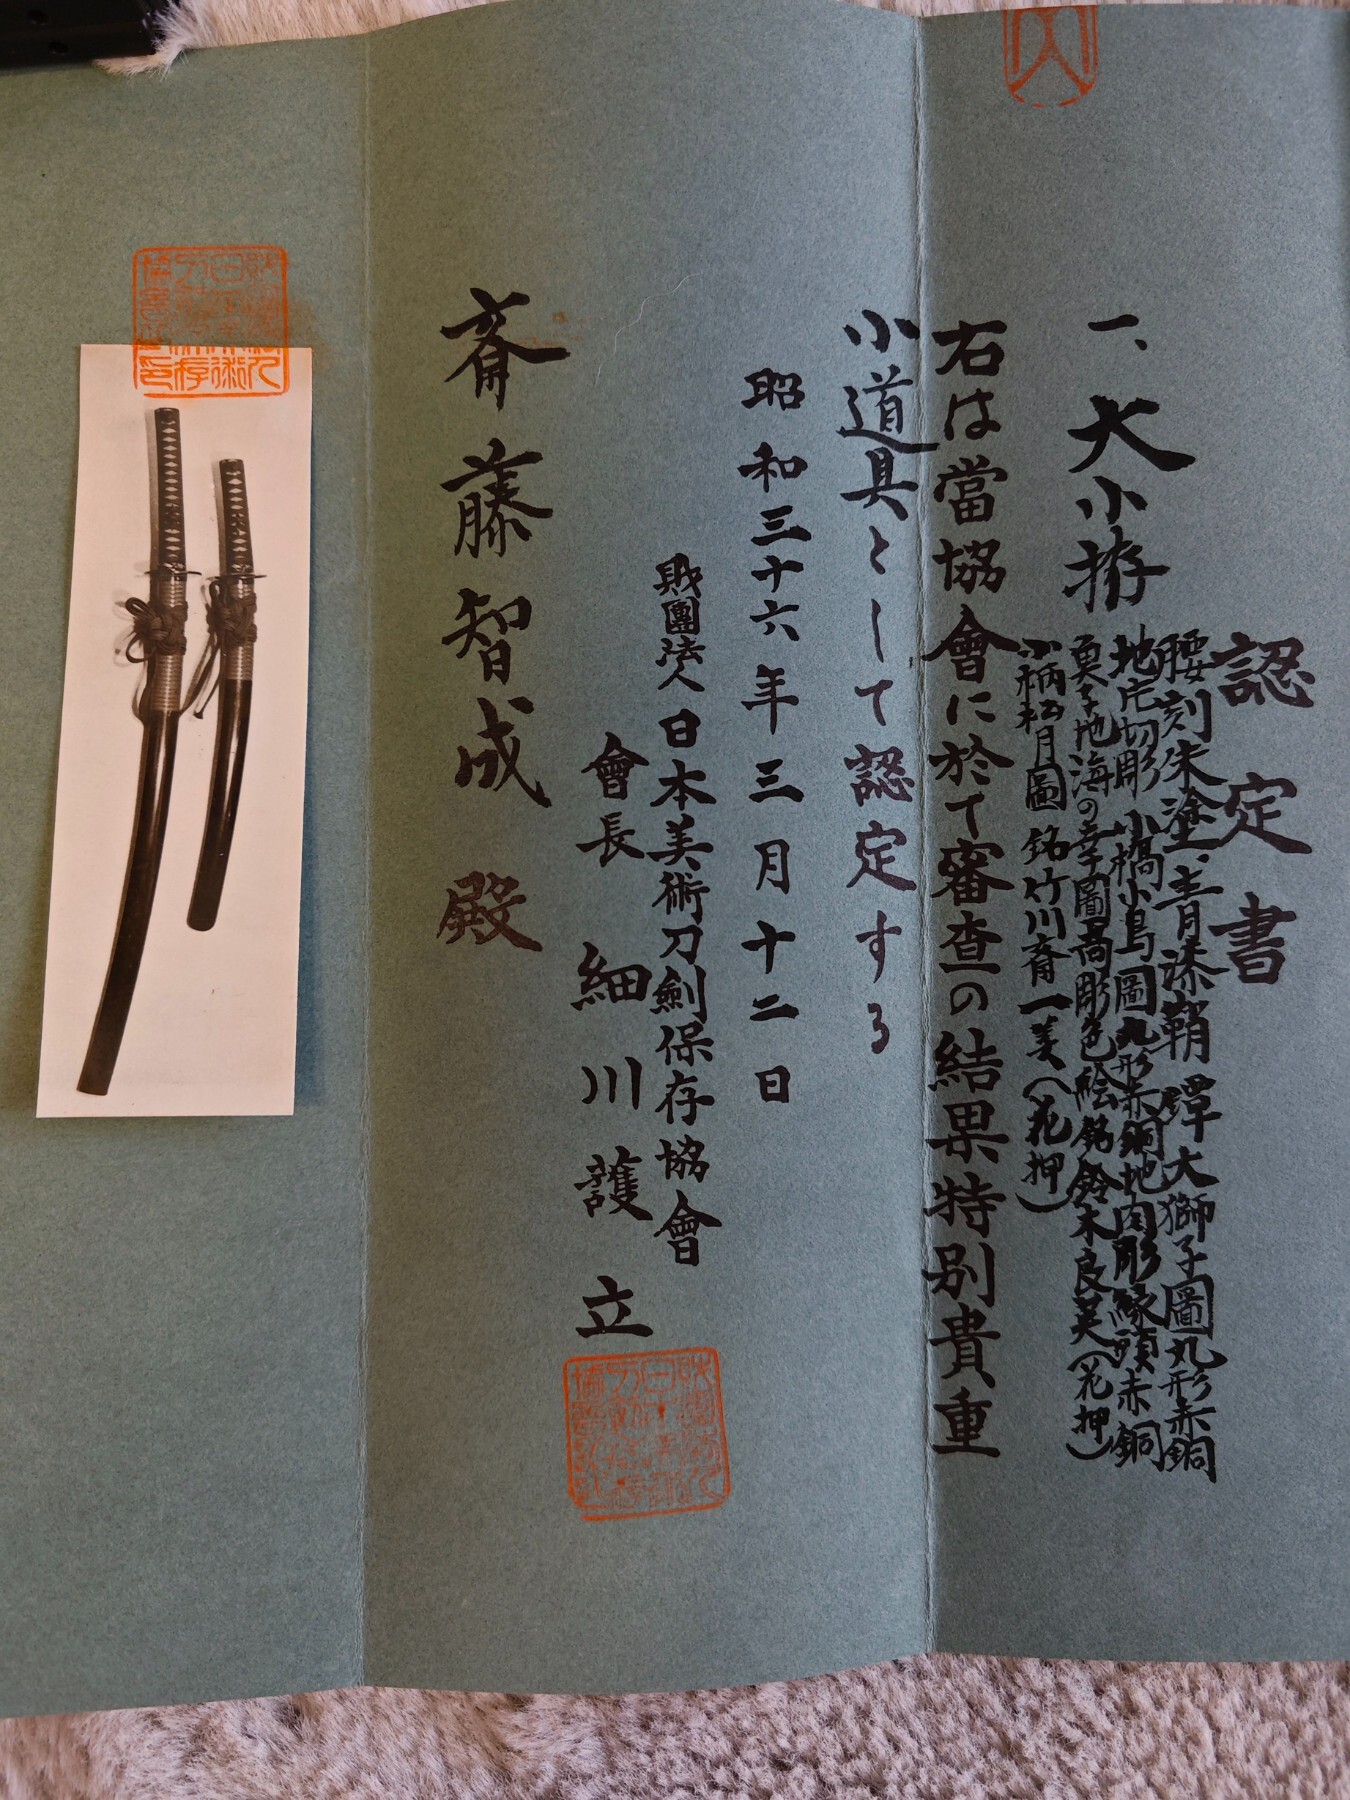 認定書
一、大小拵
腰刻朱塗、青漆鞘 鐔大獅子圖丸形赤銅
地片切彫 小槁小鳥圖丸形赤銅地肉彫縁頭赤銅
魚子地海の幸圖高彫色絵銘鈴木良英(花押)
小柄松月圖 銘竹川斎一美(花押)
右は當協會に於て審査の結果特別貴重
小道具として認定する
昭和三十六年三月十二日
財團法人日本美術刀劍保存協會
會長 細川護立
斎藤智成殿